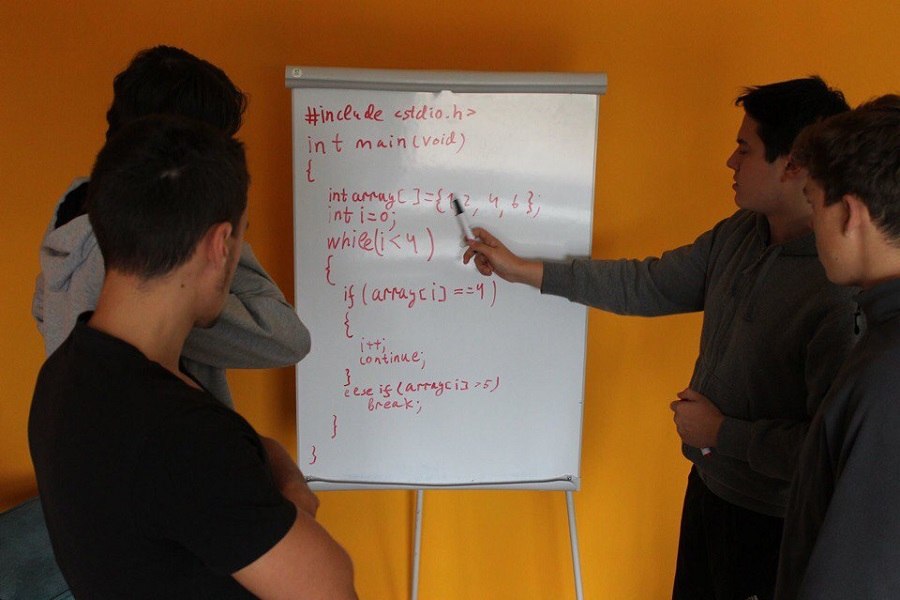 #include <stdio.h>
int main(void)
{
int array[]={1,2,4,6};
int i=0;
while(i<4)
{
if(array[i]==4)
{
i++;
continue;
}
else if(array[i]>5)
break;
}
}